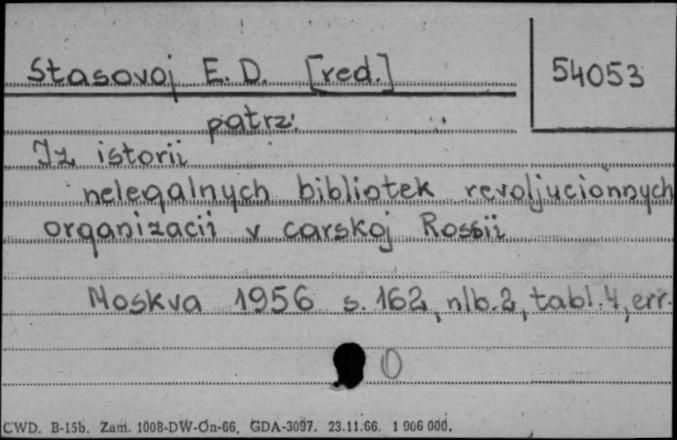 Stasovoj E. D. [red.]
54053
patrz:
Iz istorii
nelegalnych bibliotek revoljucionnych
organizacii v carskoj Rossii
Moskva 1956 s. 162, nlb. 2, tabl. 4, err.
0
CWD. B-15b. Zam. 1008-DW-On-66. GDA-3097. 23.11.66. 1 906 000.